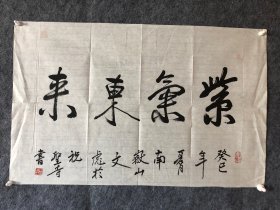 紫氣東來
癸巳年夏月南嶽山文虎於祝聖寺書